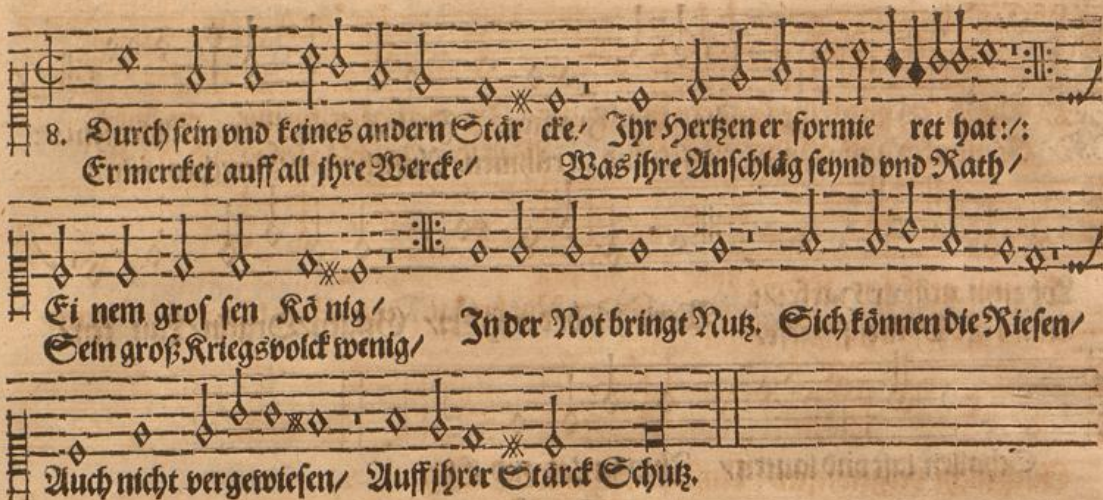 8. Durch sein vnd keines andern Stär cke/ Jhr Hertzen er formie ret hat:/:
Er mercket auff all jhre Wercke/ Was jhre Anschläg seynd vnd Rath/
Ei nem gros sen Kö nig/
Sein groß Kriegsvolck wenig/ Jn der Not bringt Nutz. Sich können die Riesen/
Auch nicht vergewiesen/ Auff jhrer Starck Schutz.